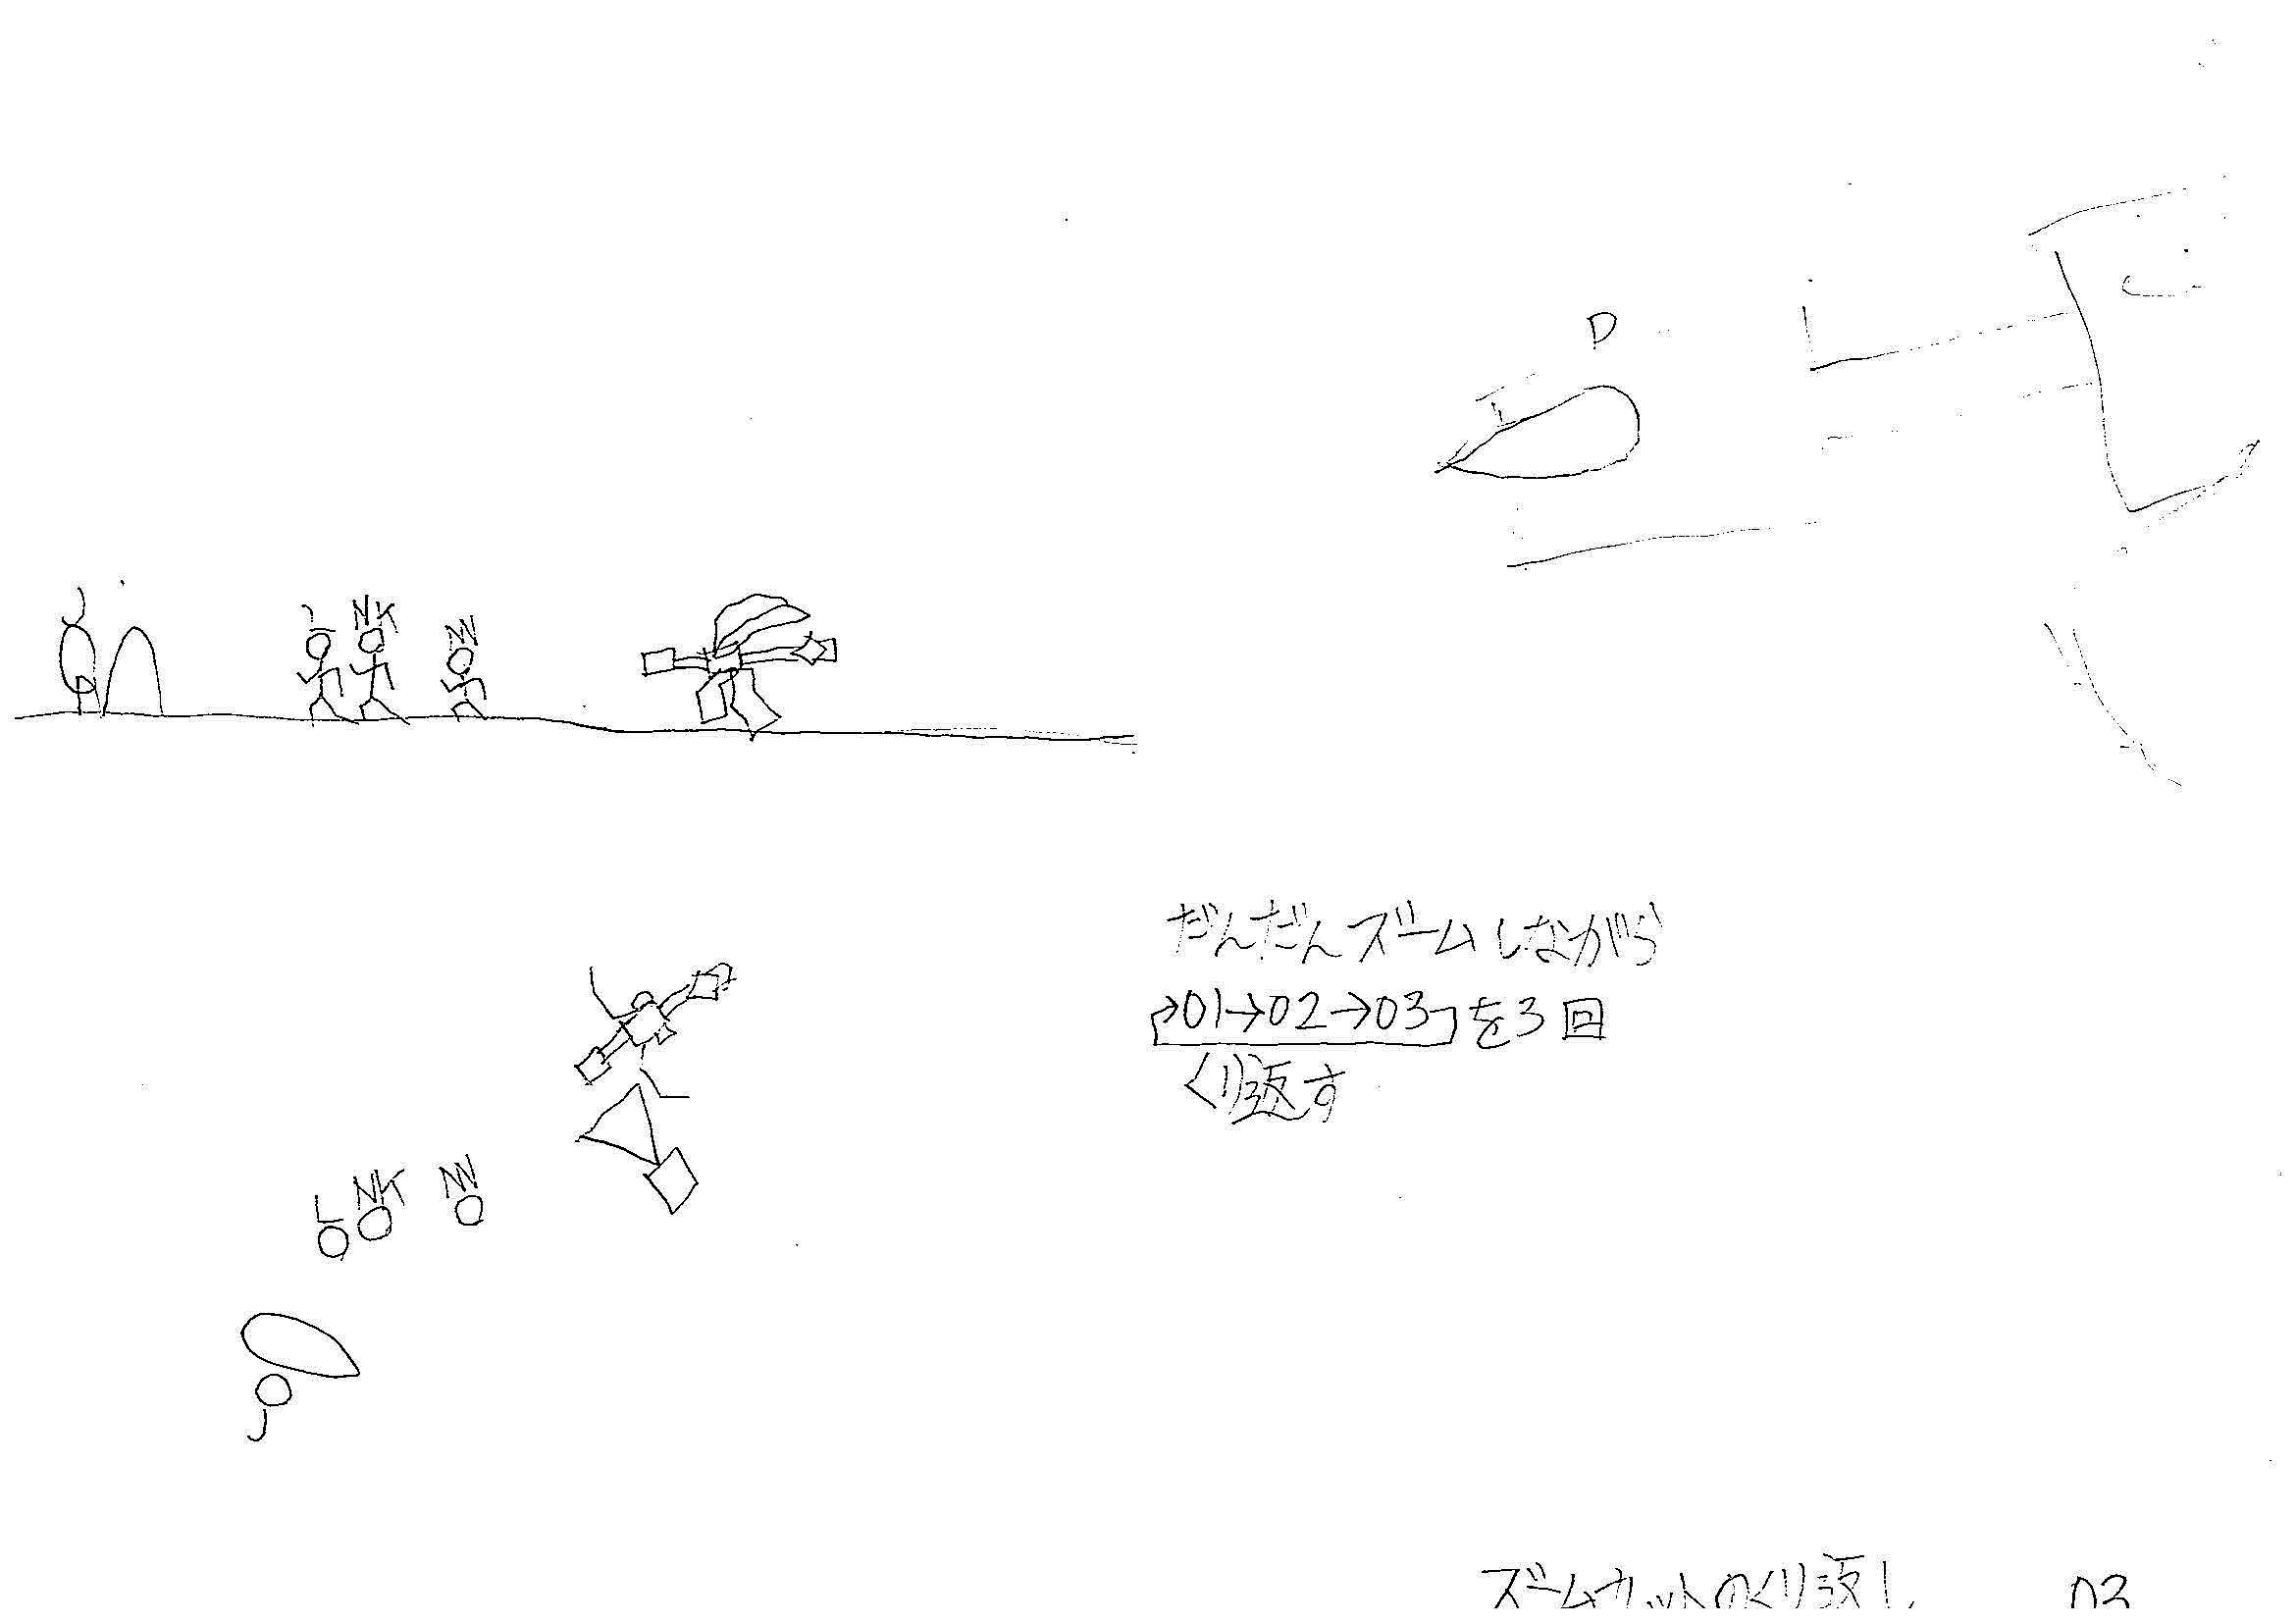 D
J
L NK N
だんだんズームしながら
01→02→03を3回
くり返す
L NK N
J
ズームカットのくり返し 03